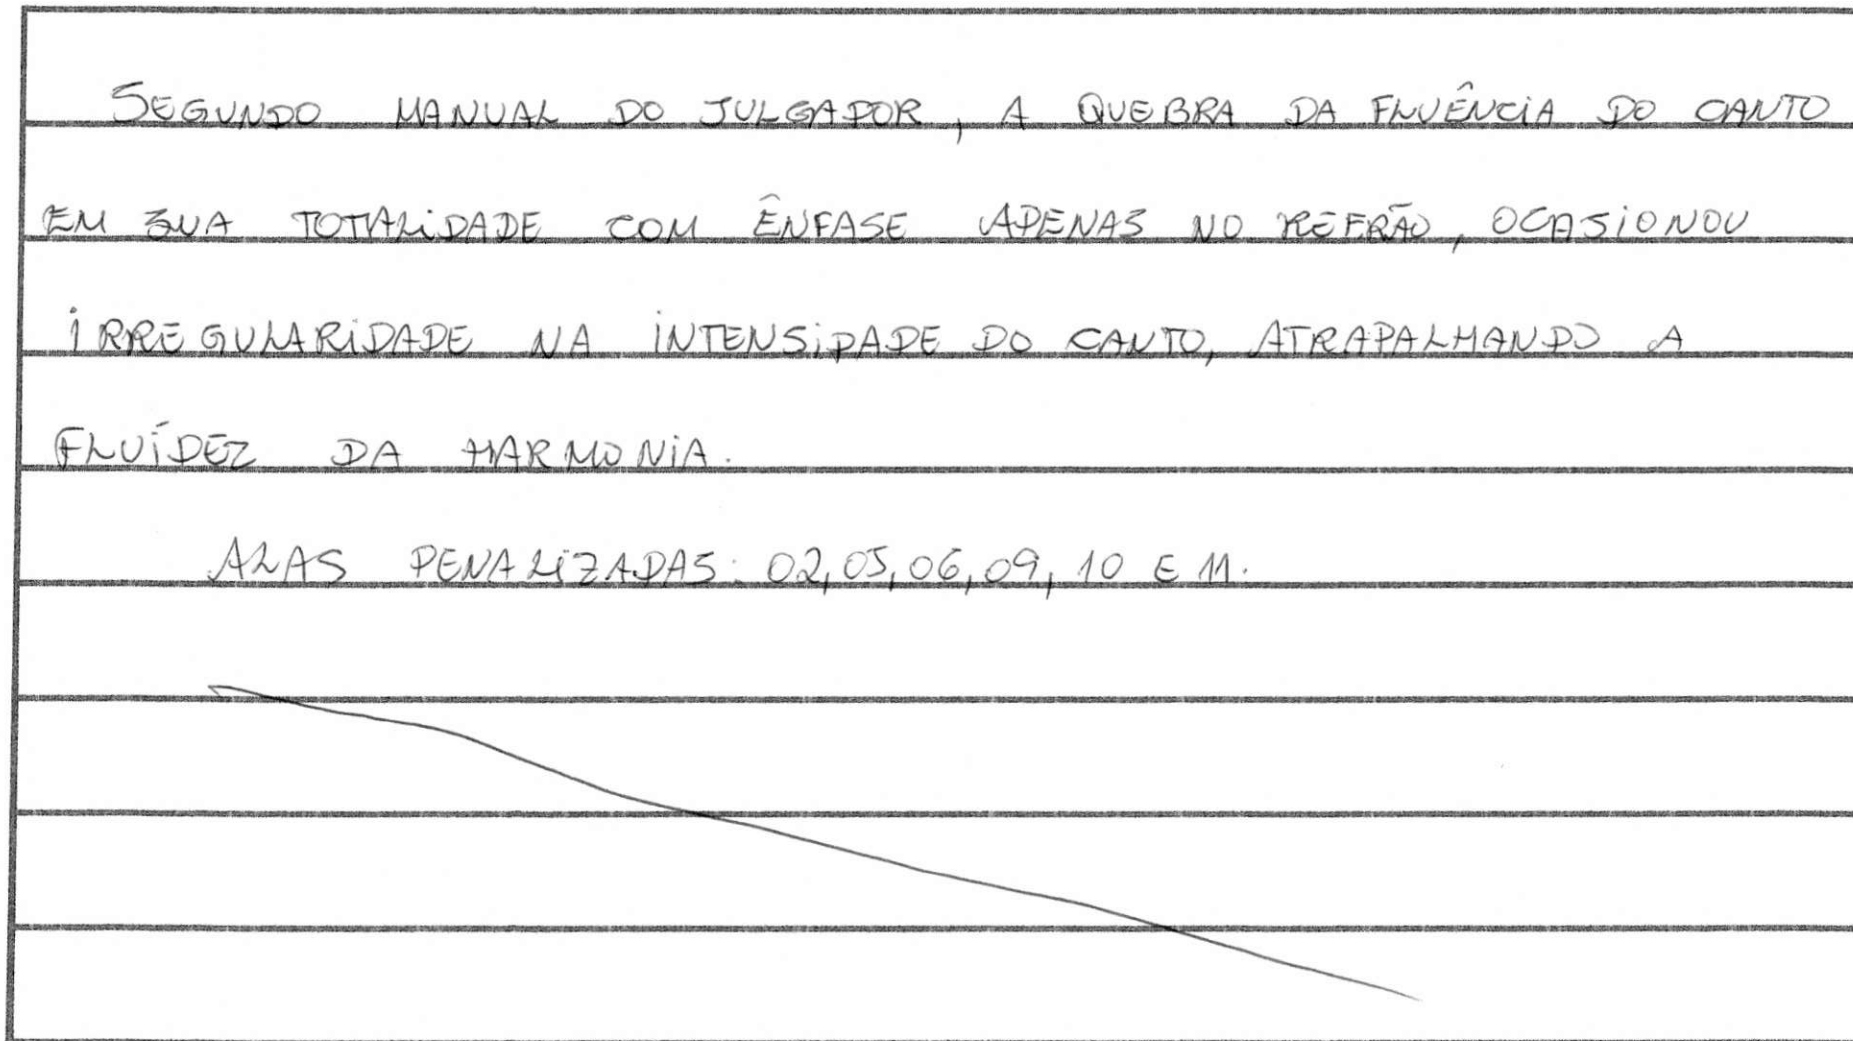 SEGUNDO MANUAL DO JULGADOR, A QUEBRA DA FLUÊNCIA DO CANTO
EM SUA TOTALIDADE COM ÊNFASE APENAS NO REFRÃO, OCASIONOU
IRREGULARIDADE NA INTENSIDADE DO CANTO, ATRAPALHANDO A
FLUÍDEZ DA HARMONIA.
ALAS PENALIZADAS: 02, 05, 06, 09, 10 E 11.